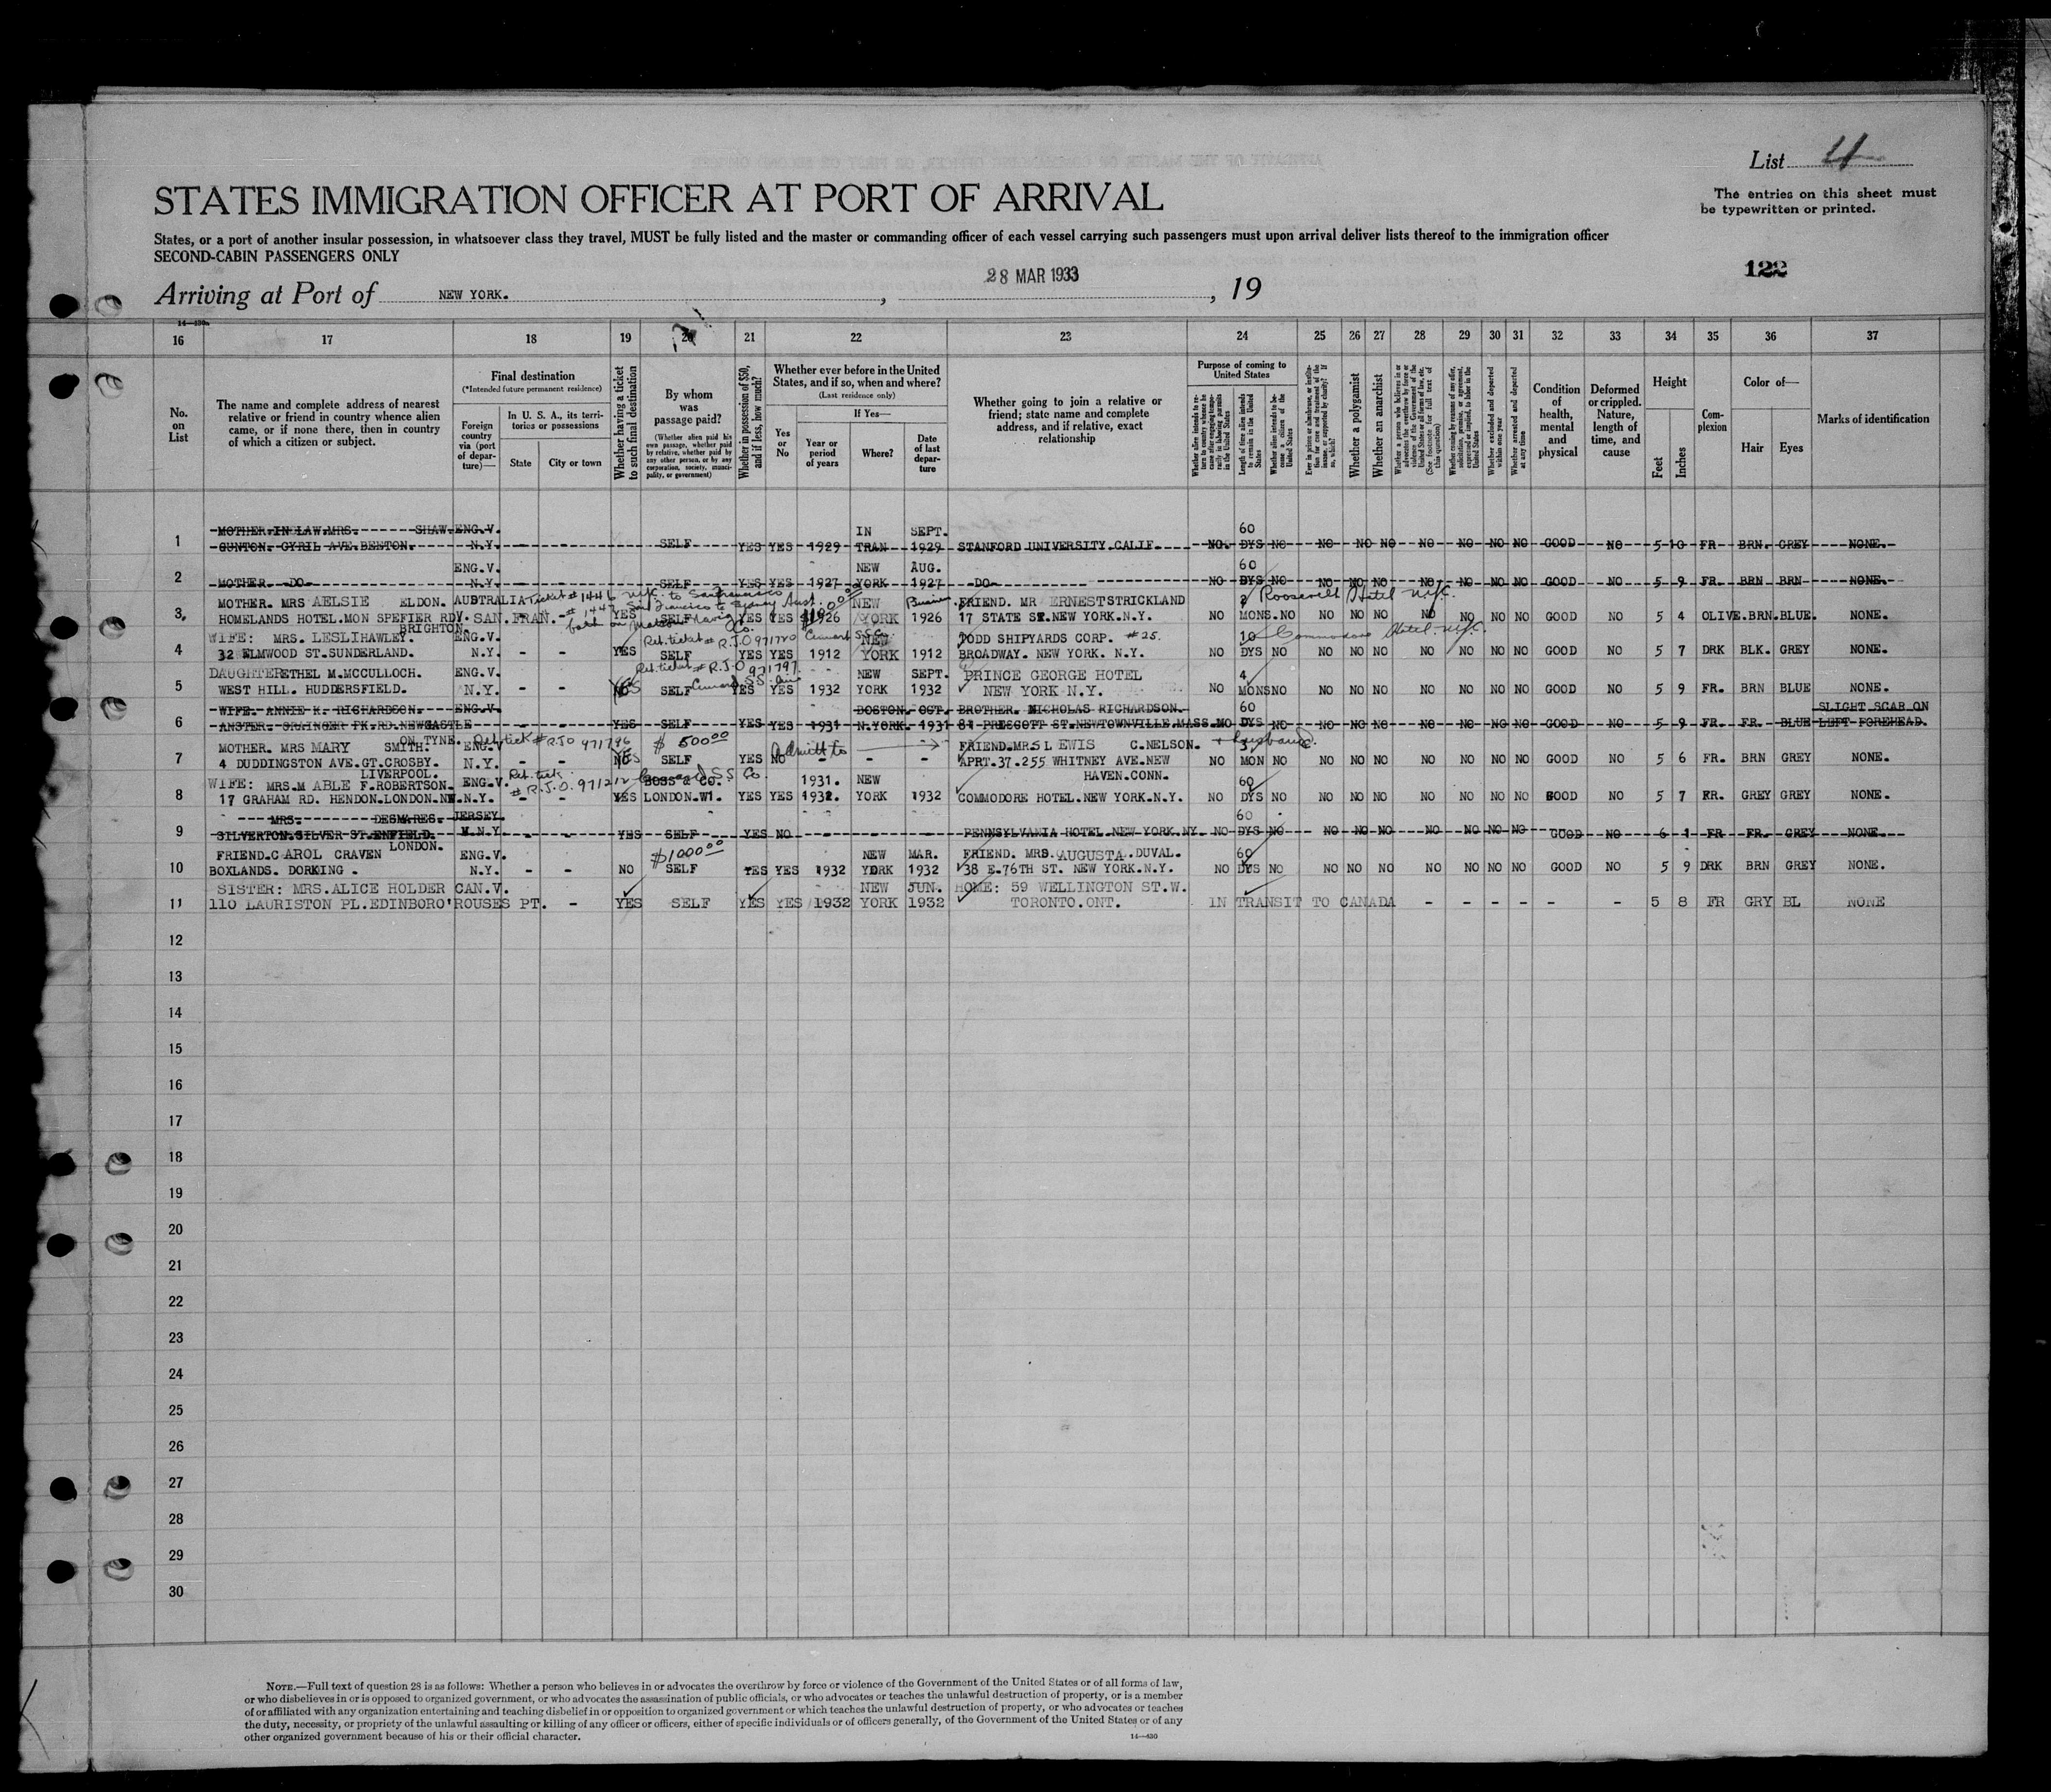 List 4
STATES IMMIGRATION OFFICER AT PORT OF ARRIVAL
The entries on this sheet must
be typewritten or printed.
States, or a port of another insular possession, in whatsoever class they travel, MUST be fully listed and the master or commanding officer of each vessel carrying such passengers must upon arrival deliver lists thereof to the immigration officer
SECOND-CABIN PASSENGERS ONLY
122
Arriving at Port of NEW YORK. , 28 MAR 1933 , 19
14—430
16 17 18 19 20 21 22 23 24 25 26 27 28 29 30 31 32 33 34 35 36 37
No. on List
The name and complete address of nearest relative or friend in country whence alien came, or if none there, then in country of which a citizen or subject.
Final destination
(*Intended future permanent residence)
Foreign country via (port of departure)—
In U. S. A., its territories or possessions
State
City or town
Whether having a ticket to such final destination
By whom was passage paid?
(Whether alien paid his own passage, whether paid by relative, whether paid by any other person, or by any corporation, society, municipality, or government)
Whether in possession of $50, and if less, how much?
Whether ever before in the United States, and if so, when and where?
(Last residence only)
Yes or No
If Yes—
Year or period of years
Where?
Date of last departure
Whether going to join a relative or friend; state name and complete address, and if relative, exact relationship
Purpose of coming to United States
Whether alien intends to return to country whence he came after engaging temporarily in laboring pursuits in the United States
Length of time alien intends to remain in the United States
Whether alien intends to become a citizen of the United States
Ever in prison or almshouse, or institution for care and treatment of the insane, or supported by charity? If so, which?
Whether a polygamist
Whether an anarchist
Whether a person who believes in or advocates the overthrow by force or violence of the Government of the United States or all forms of law, etc. (See footnote for full text of this question)
Whether coming by reasons of any offer, solicitation, promise, or agreement, expressed or implied, to labor in the United States
Whether excluded and deported within one year
Whether arrested and deported at any time
Condition of health, mental and physical
Deformed or crippled. Nature, length of time, and cause
Height
Feet
Inches
Complexion
Color of—
Hair
Eyes
Marks of identification
MOTHER.IN LAW.MRS. SHAW. ENG.V. IN SEPT. 60
1 GUNTON. CYRIL AVE.BEETON. N.Y. - - SELF YES YES 1929 TRAN 1929 STANFORD UNIVERSITY.CALIF. NO. DYS NO NO NO NO NO NO NO NO GOOD NO 5 10 FR BRN. GREY NONE.
ENG.V. NEW AUG. 60
2 MOTHER. -DO- N.Y. - - SELF YES YES 1927 YORK 1927 -DO- NO DYS NO NO NO NO NO NO NO NO GOOD NO 5 9 FR. BRN BRN NONE.
MOTHER. MRS AELSIE ELDON. AUSTRALIA Ticket # 1446 N.Y.C. to San Francisco NEW Business FRIEND. MR ERNEST STRICKLAND 2 Roosevelt Hotel N.Y.C.
# 1447 San Francisco to Sydney Aust.
3 HOMELANDS HOTEL.MON SPEFIER RDY. SAN.FRAN. YES SELF YES YES 1926 YORK 1926 17 STATE ST.NEW YORK.N.Y. NO MONS. NO NO NO NO NO NO NO NO GOOD NO 5 4 OLIVE. BRN. BLUE. NONE.
BRIGHTON.
WIFE: MRS. LESLI HAWLEY. ENG.V. Ret. ticket # R.J.O 971780 Cunard S.S.Co. NEW TODD SHIPYARDS CORP. #25. 10 Commodore Hotel. N.Y.C.
4 32 ELMWOOD ST.SUNDERLAND. N.Y. - - YES SELF YES YES 1912 YORK 1912 BROADWAY. NEW YORK. N.Y. NO DYS NO NO NO NO NO NO NO NO GOOD NO 5 7 DRK BLK. GREY NONE.
DAUGHTER ETHEL M.MCCULLOCH. ENG.V. Ret. ticket # R.J.O 971797 Cunard SS Line NEW SEPT. PRINCE GEORGE HOTEL 4
5 WEST HILL. HUDDERSFIELD. N.Y. - - YES SELF YES YES 1932 YORK 1932 NEW YORK N.Y. NO MONS NO NO NO NO NO NO NO NO GOOD NO 5 9 FR. BRN BLUE NONE.
WIFE. ANNIE K. RICHARDSON. ENG.V. BOSTON. OCT. BROTHER. NICHOLAS RICHARDSON. 60 SLIGHT SCAB ON
6 ANSTER. GRAINGER PK.RD.NEWCASTLE YES SELF YES YES 1931 N.YORK. 1931 81 PRESCOTT ST.NEWTOWNVILLE.MASS. NO DYS NO NO NO NO NO NO NO NO GOOD NO 5 9 FR. FR. BLUE LEFT FOREHEAD.
ON TYNE.
MOTHER. MRS MARY SMYTH. ENG.V Ret tick # R.J.O 971796 $ 500 00 Admitto FRIEND.MRS L EWIS C.NELSON. + husband. 3
7 4 DUDDINGSTON AVE.GT.CROSBY. N.Y. - - YES SELF YES NO - - - APRT.37.255 WHITNEY AVE.NEW NO MON NO NO NO NO NO NO NO NO GOOD NO 5 6 FR. BRN GREY NONE.
LIVERPOOL. HAVEN.CONN.
WIFE: MRS.M ABLE F.ROBERTSON. ENG.V. Ret. tick. # R.J.O. 971212 Cunard S.S Co. BOSS & CO. 1931. NEW 60
8 17 GRAHAM RD. HENDON.LONDON.NW. N.Y. - - YES LONDON.W1. YES YES 1932. YORK 1932 COMMODORE HOTEL.NEW YORK.N.Y. NO DYS NO NO NO NO NO NO NO NO GOOD NO 5 7 FR. GREY GREY NONE.
MRS. DESMARES. JERSEY. 60
9 SILVERTON.SILVER ST.ENFIELD. N.Y. - - YES SELF YES NO - - - PENNSYLVANIA HOTEL.NEW YORK.NY. NO DYS NO NO NO NO NO NO NO NO GOOD NO 6 1 FR FR. GREY NONE.
LONDON.
FRIEND.C AROL CRAVEN ENG.V. $1000 00 NEW MAR. FRIEND. MRS.AUGUSTA.DUVAL. 60
10 BOXLANDS. DORKING . N.Y. - - NO SELF YES YES 1932 YORK 1932 38 E.76TH ST. NEW YORK.N.Y. NO DYS NO NO NO NO NO NO NO NO GOOD NO 5 9 DRK BRN GREY NONE.
SISTER: MRS.ALICE HOLDER CAN.V. NEW JUN. HOME: 59 WELLINGTON ST.W.
11 110 LAURISTON PL.EDINBORO' ROUSES PT. - YES SELF YES YES 1932 YORK 1932 TORONTO.ONT. IN TRANSIT TO CANADA - - - - - - 5 8 FR GRY BL NONE
12
13
14
15
16
17
18
19
20
21
22
23
24
25
26
27
28
29
30
NOTE.—Full text of question 28 is as follows: Whether a person who believes in or advocates the overthrow by force or violence of the Government of the United States or of all forms of law,
or who disbelieves in or is opposed to organized government, or who advocates the assassination of public officials, or who advocates or teaches the unlawful destruction of property, or is a member
of or affiliated with any organization entertaining and teaching disbelief in or opposition to organized government or which teaches the unlawful destruction of property, or who advocates or teaches
the duty, necessity, or propriety of the unlawful assaulting or killing of any officer or officers, either of specific individuals or of officers generally, of the Government of the United States or of any
other organized government because of his or their official character.
14—430